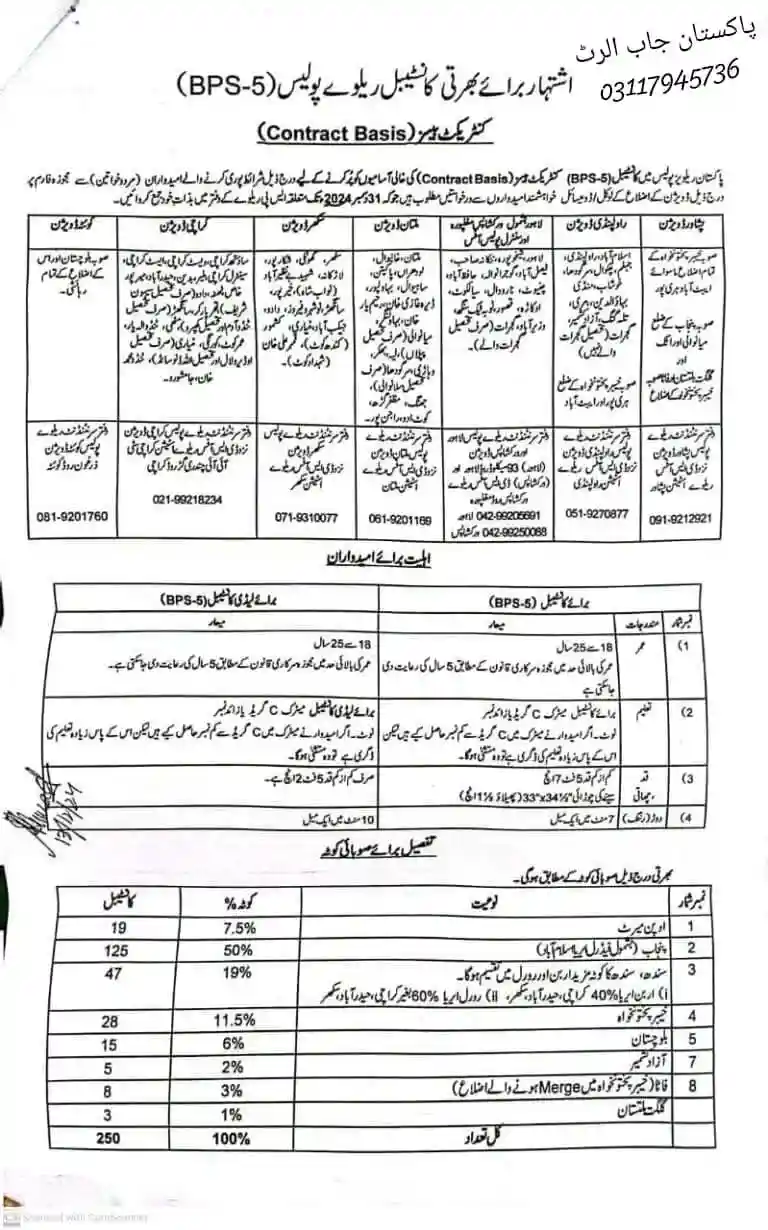 پاکستان جاب الرٹ
03117945736
اشتہار برائے بھرتی کانسٹیبل ریلوے پولیس (BPS-5)
کنٹریکٹ بیسز (Contract Basis)
پاکستان ریلویز پولیس میں کانسٹیبل (BPS-5) کنٹریکٹ بیسز (Contract Basis) کی خالی آسامیوں کو پُر کرنے کے لیے درج ذیل شرائط پوری کرنے والے امیدواران (مرد و خواتین) سے مجوزہ فارم پر
درج ذیل ڈویژن کے اضلاع کے لوکل / ڈومیسائل خواہشمند امیدواروں سے درخواستیں مطلوب ہیں جو کہ 31 دسمبر 2024 تک متعلقہ ایس پی ریلوے کے دفتر میں بذات خود جمع کروائیں۔
پشاور ڈویژن
صوبہ خیبر پختونخواہ کے
تمام اضلاع ماسوائے
ایبٹ آباد ہری پور
صوبہ پنجاب کے ضلع
میانوالی اور اٹک
اور
گلگت بلتستان
خیبر پختونخواہ کے اضلاع
دفتر سپرنٹنڈنٹ ریلوے
پولیس پشاور ڈویژن
نزد ڈی ایس آفس
ریلوے اسٹیشن پشاور
091-9212921
راولپنڈی ڈویژن
اسلام آباد، راولپنڈی،
جہلم، چکوال، سرگودھا،
خوشاب، منڈی
بہاؤالدین، مری،
تلہ گنگ، آزاد کشمیر،
گجرات (تحصیل گجرات
والے نہیں)
صوبہ خیبر پختونخواہ کے ضلع
ہری پور اور ایبٹ آباد
دفتر سپرنٹنڈنٹ ریلوے
پولیس راولپنڈی ڈویژن
نزد ڈی ایس آفس ریلوے
اسٹیشن راولپنڈی
051-9270877
لاہور بشمول ورکشاپس مغلپورہ
اور سنٹرل پولیس آفس
لاہور، شیخوپورہ، ننکانہ صاحب،
فیصل آباد، گوجرانوالہ، حافظ آباد،
چنیوٹ، نارووال، سیالکوٹ،
اوکاڑہ، قصور، ٹوبہ ٹیک سنگھ،
وزیر آباد، گجرات (صرف تحصیل
گجرات والے)
دفتر سپرنٹنڈنٹ ریلوے پولیس لاہور
اور ورکشاپس ڈویژن
(لاہور) 93 میکلوڈ روڈ لاہور اور
(ورکشاپس) ڈی ایس آفس ریلوے
ورکشاپس روڈ مغلپورہ
042-99205691 لاہور
042-99250068 ورکشاپس
ملتان ڈویژن
ملتان، خانیوال،
لودھراں، پاکپتن،
ساہیوال، بہاولپور،
ڈیرہ غازی خان، رحیم یار
خان، بہاولنگر،
میانوالی (صرف تحصیل
پپلاں)، لیہ، بھکر،
وہاڑی، سرگودھا (صرف
تحصیل سلانوالی)،
جھنگ، مظفر گڑھ،
کوٹ ادو، راجن پور۔
دفتر سپرنٹنڈنٹ ریلوے
پولیس ملتان ڈویژن
نزد ڈی ایس آفس ریلوے
اسٹیشن ملتان
061-9201169
سکھر ڈویژن
سکھر، گھوٹکی، شکار پور،
لاڑکانہ، شہید بے نظیر آباد
(نواب شاہ)، خیر پور،
سانگھڑ، نوشہرو فیروز، دادو،
جیکب آباد، کشمور
(کندھ کوٹ)، قمبر علی خان
(شہداد کوٹ)۔
دفتر سپرنٹنڈنٹ ریلوے پولیس
سکھر ڈویژن
نزد ڈی ایس آفس ریلوے
اسٹیشن سکھر
071-9310077
کراچی ڈویژن
ساؤتھ کراچی، ویسٹ کراچی، ایسٹ کراچی،
سینٹرل کراچی، ملیر، بدین، حیدر آباد، میر پور
خاص، ٹھٹھہ، دادو (صرف تحصیل سیہون
شریف)، تھرپارکر، سانگھڑ (صرف تحصیل
ٹنڈو آدم اور تحصیل کھپرو)، مٹھی، ٹنڈو الہ یار،
عمر کوٹ، کورنگی،
ٹنڈو محمد
خان، جامشورو۔
دفتر سپرنٹنڈنٹ ریلوے پولیس کراچی ڈویژن
نزد ڈی ایس آفس ریلوے اسٹیشن کراچی آئی
آئی چندریگر روڈ کراچی
021-99218234
کوئٹہ ڈویژن
صوبہ بلوچستان اور اس
کے اضلاع کے تمام
رہائشی۔
دفتر سپرنٹنڈنٹ ریلوے
پولیس کوئٹہ ڈویژن
زرغون روڈ کوئٹہ
081-9201760
اہلیت برائے امیدواران
برائے کانسٹیبل (BPS-5) برائے لیڈی کانسٹیبل (BPS-5)
نمبر شمار مندرجات معیار معیار
(1 عمر 18 سے 25 سال 18 سے 25 سال
عمر کی بالائی حد میں مجوزہ سرکاری قانون کے مطابق 5 سال کی رعایت دی عمر کی بالائی حد میں مجوزہ سرکاری قانون کے مطابق 5 سال کی رعایت دی جا سکتی ہے۔
جا سکتی ہے
(2 تعلیم برائے کانسٹیبل میٹرک C گریڈ یا زائد نمبر برائے لیڈی کانسٹیبل میٹرک C گریڈ یا زائد نمبر
نوٹ۔ اگر امیدوار نے میٹرک میں C گریڈ سے کم نمبر حاصل کیے ہیں لیکن نوٹ۔ اگر امیدوار نے میٹرک میں C گریڈ سے کم نمبر حاصل کیے ہیں لیکن اس کے پاس زیادہ تعلیم کی
اس کے پاس زیادہ تعلیم کی ڈگری ہے تو وہ مستثنیٰ ہو گا۔ ڈگری ہے تو وہ مستثنیٰ ہو گا۔
(3 قد کم از کم قد 5 فٹ 7 انچ صرف کم از کم قد 5 فٹ 2 انچ ہے۔
چھاتی سینے کی چوڑائی "33"x34½ (پھیلاؤ 1½ انچ)
(4 دوڑ (رننگ) 7 منٹ میں ایک میل 10 منٹ میں ایک میل
13/12/24
تفصیل برائے صوبائی کوٹہ
بھرتی درج ذیل صوبائی کوٹہ کے مطابق ہو گی۔
نمبر شمار نوعیت کوٹہ % کانسٹیبل
1 اوپن میرٹ 7.5% 19
2 پنجاب (بشمول فیڈرل ایریا اسلام آباد) 50% 125
3 سندھ، سندھ کا کوٹہ مزید اربن اور رورل میں تقسیم ہو گا۔ 19% 47
i) اربن ایریا 40% کراچی، حیدر آباد، سکھر، ii) رورل ایریا 60% بغیر کراچی، حیدر آباد، سکھر
4 خیبر پختونخواہ 11.5% 28
5 بلوچستان 6% 15
7 آزاد کشمیر 2% 5
8 فاٹا (خیبر پختونخواہ میں Merge ہونے والے اضلاع) 3% 8
گلگت بلتستان 1% 3
کل تعداد 100% 250
Scanned with CamScanner